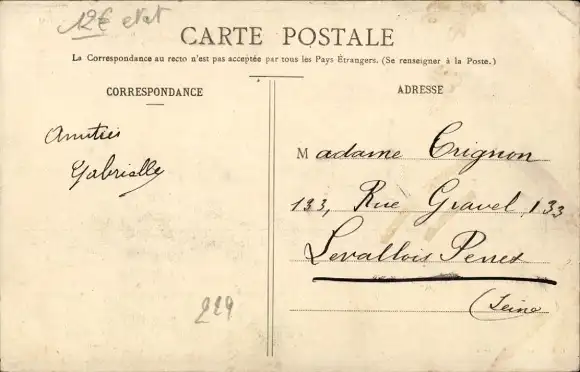 12€ etat
CARTE POSTALE
La Correspondance au recto n'est pas acceptée par tous les Pays Étrangers. (Se renseigner à la Poste.)
CORRESPONDANCE
Amitiés
Gabrielle
229
ADRESSE
Madame Crignon
133, Rue Gravel, 133
Levallois Perret
(Seine)